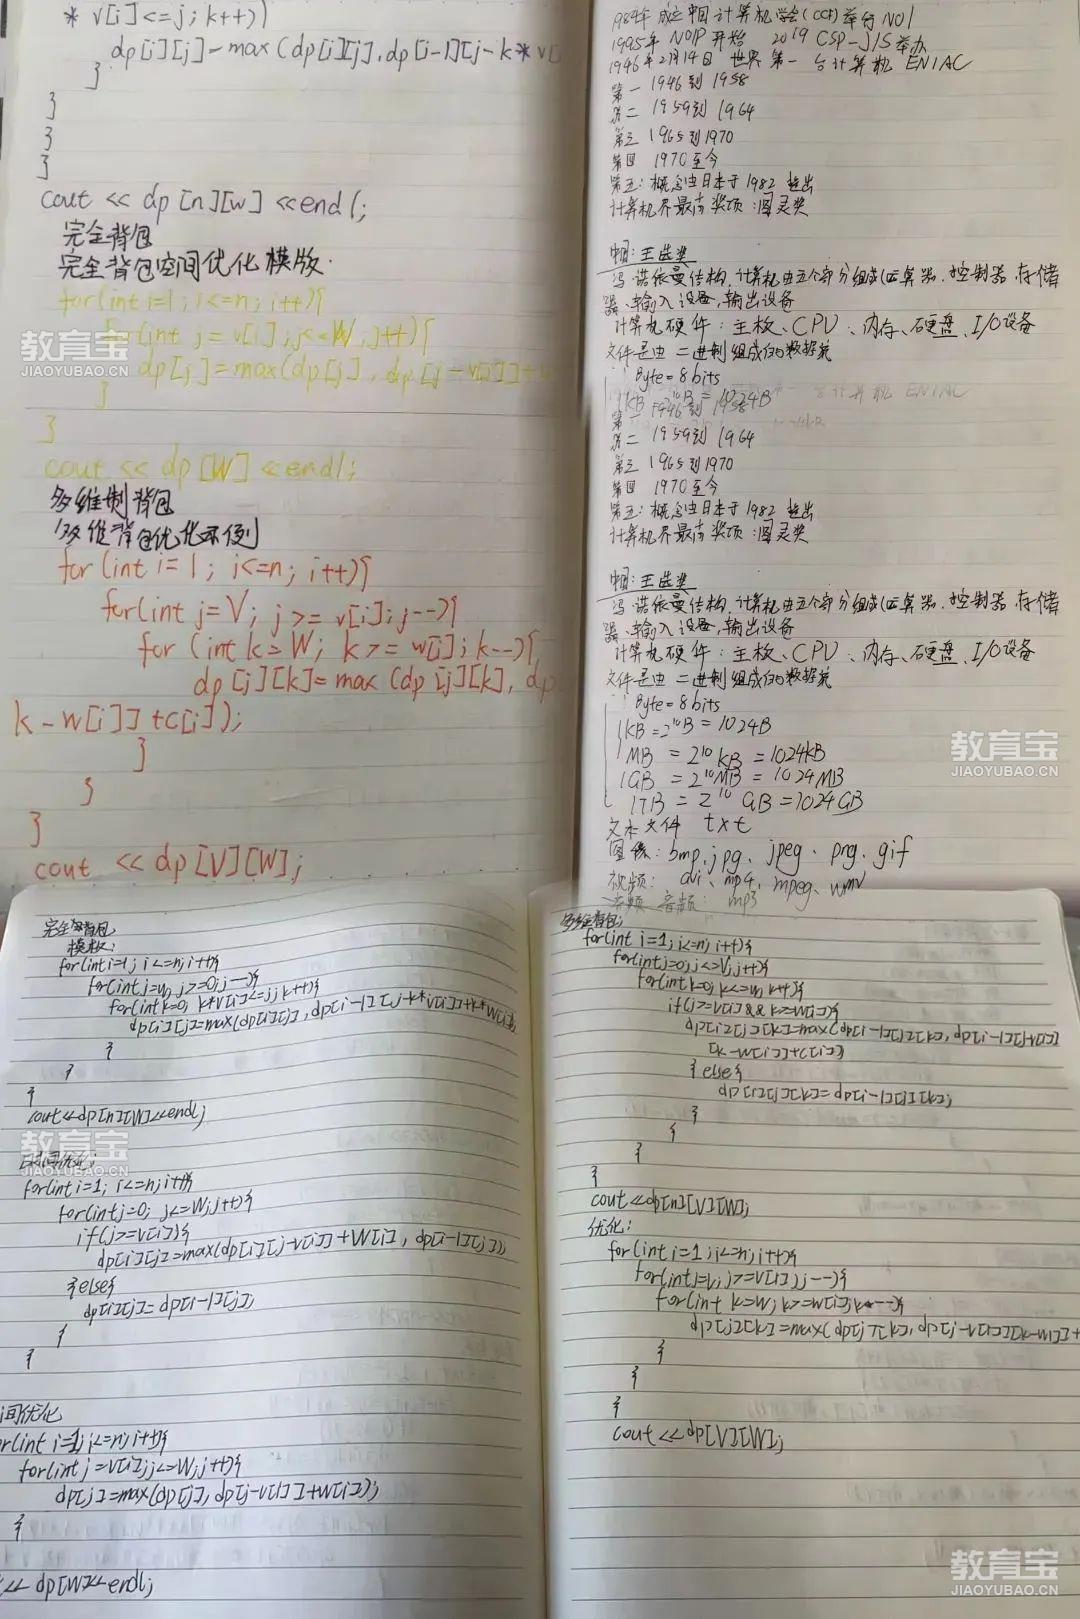 * v[i]<=j; k++){
dp[i][j]=max(dp[i][j],dp[i-1][j-k*v[
}
}
}
}
cout << dp[n][w] <<endl;
完全背包
完全背包空间优化模版.
for(int i=1; i<=n; i++){
for(int j=v[i]; j<=W; j++){
dp[j]=max(dp[j], dp[j-v[i]]+
}
}
cout << dp[W] <<endl;
多维制背包
(多维背包优化示例)
for(int i=1; i<=n; i++){
for(int j=V; j>=v[i]; j--){
for(int k=W; k>=w[i]; k--){
dp[j][k]=max(dp[j][k], dp
k-w[i]]+c[i]);
}
}
}
cout << dp[V][W];
1984年 成立中国计算机学会(CCF)举行NOI
1995年 NOIP开始 2019 CSP-J/S举办
1946年2月14日 世界第一台计算机 ENIAC
第一 1946到1958
第二 1959到1964
第三 1965到1970
第四 1970至今
第五:概念由日本于1982 提出
计算机界最高奖项:图灵奖
中国:王选奖
冯·诺依曼结构,计算机由五个部分组成(运算器.控制器.存储
器.输入设备,输出设备
计算机硬件:主板、CPU、内存、硬盘、I/O设备
文件是由二进制组成的数据流
1 Byte=8bits
1KB=2^10B=1024B
第一 1946到1958
第二 1959到1964
第三 1965到1970
第四 1970至今
第五:概念由日本于1982 提出
计算机界最高奖项:图灵奖
中国:王选奖
冯·诺依曼结构,计算机由五个部分组成(运算器.控制器.存储
器.输入设备,输出设备
计算机硬件:主板、CPU、内存、硬盘、I/O设备
文件是由二进制组成的数据流
1 Byte=8bits
1KB=2^10B=1024B
1MB=2^10KB=1024KB
1GB=2^10MB=1024MB
1TB=2^10GB=1024GB
文本文件 txt
图像:bmp.jpg、jpeg.png.gif
视频:avi、mp4、mpeg、wmv
音频 音频:mp3
完全背包
模板:
for(int i=1; i<=n;i++){
for(int j=w; j>=0;j--){
for(int k=0; k*v[i]<=j;k++){
dp[i][j]=max(dp[i][j],dp[i-1][j-k*v[i]]+k*w[i]);
}
}
}
cout<<dp[n][W]<<endl;
时间优化:
for(int i=1; i<=n;i++){
for(int j=0; j<=W;j++){
if(j>=v[i]){
dp[i][j]=max(dp[i][j-v[i]]+W[i],dp[i-1][j])
}else{
dp[i][j]=dp[i-1][j];
}
}
间优化
or(int i=1;i<=n;i++){
for(int j=v[i];j<=W;j++){
dp[j]=max(dp[j],dp[j-v[i]]+w[i]);
}
<<dp[W]<<endl;
多维背包:
for(int i=1;i<=n;i++){
for(int j=0;j<=V;j++){
for(int k=0;k<=w;k++){
if(j>=v[i]&&k>=w[i]){
dp[i][j][k]=max(dp[i-1][j][k],dp[i-1][j-v[i]]
[k-w[i]]+c[i])
}else{
dp[i][j][k]=dp[i-1][j][k];
}
}
}
}
cout<<dp[n][V][W];
优化:
for(int i=1;i<=n;i++){
for(int j=V;j>=v[i];j--){
for(int k=W;k>=w[i];k--){
dp[j][k]=max(dp[j][k],dp[j-v[i]][k-w[i]]+
}
}
}
cout<<dp[V][W];
教育宝
JIAOYUBAO.CN
教育宝
JIAOYUBAO.CN
教育宝
JIAOYUBAO.CN
教育宝
JIAOYUBAO.CN